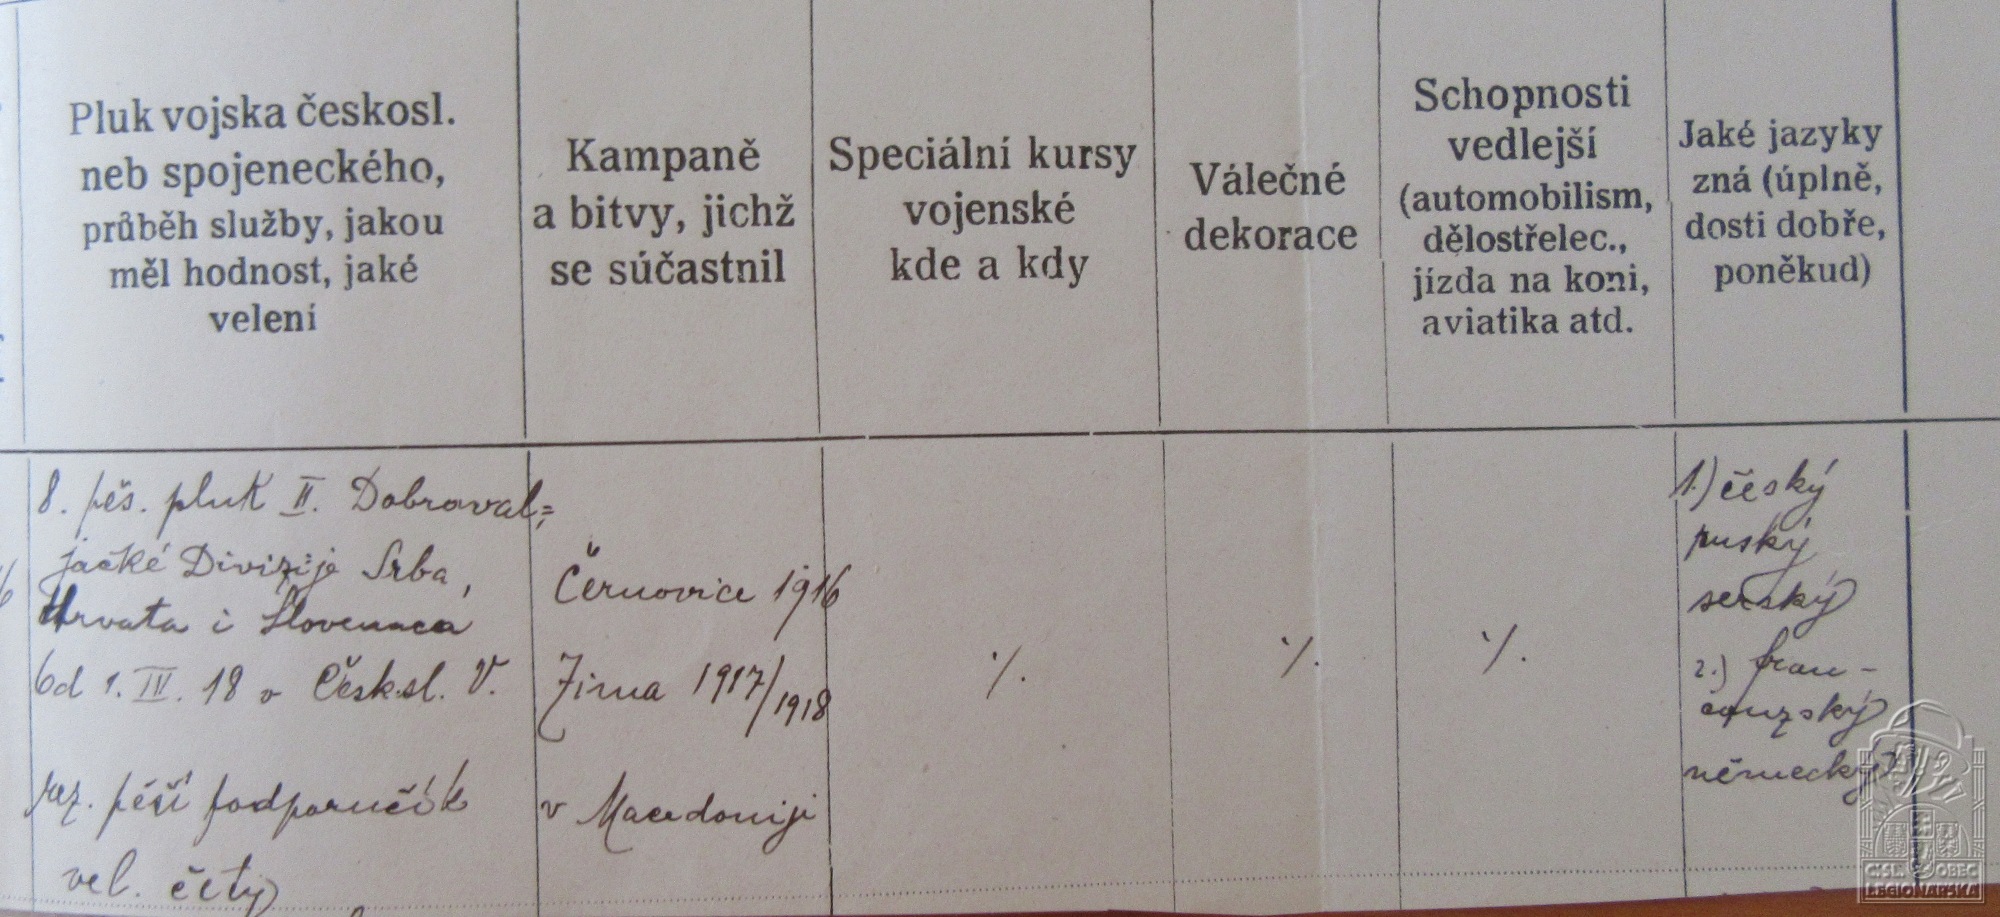 Pluk vojska českosl.
neb spojeneckého,
průběh služby, jakou
měl hodnost, jaké
velení
Kampaně
a bitvy, jichž
se súčastnil
Speciální kursy
vojenské
kde a kdy
Válečné
dekorace
Schopnosti
vedlejší
(automobilism,
dělostřelec.,
jízda na koni,
aviatika atd.
Jaké jazyky
zná (úplně,
dosti dobře,
poněkud)
8. pěš. pluk II. Dobrovol=
jačké Divizije Srba,
Hrvata i Slovenaca
Od 1. IV. 18 v Česk.sl. V.
rez. pěší podporučík
vel. čety
Černovice 1916
Zima 1917/1918
v Macedoniji
·/.
·/.
·/.
1.) český
ruský
serský
2.) fran-
couzský
německý
ČSL. OBEC
LEGIONÁŘSKÁ